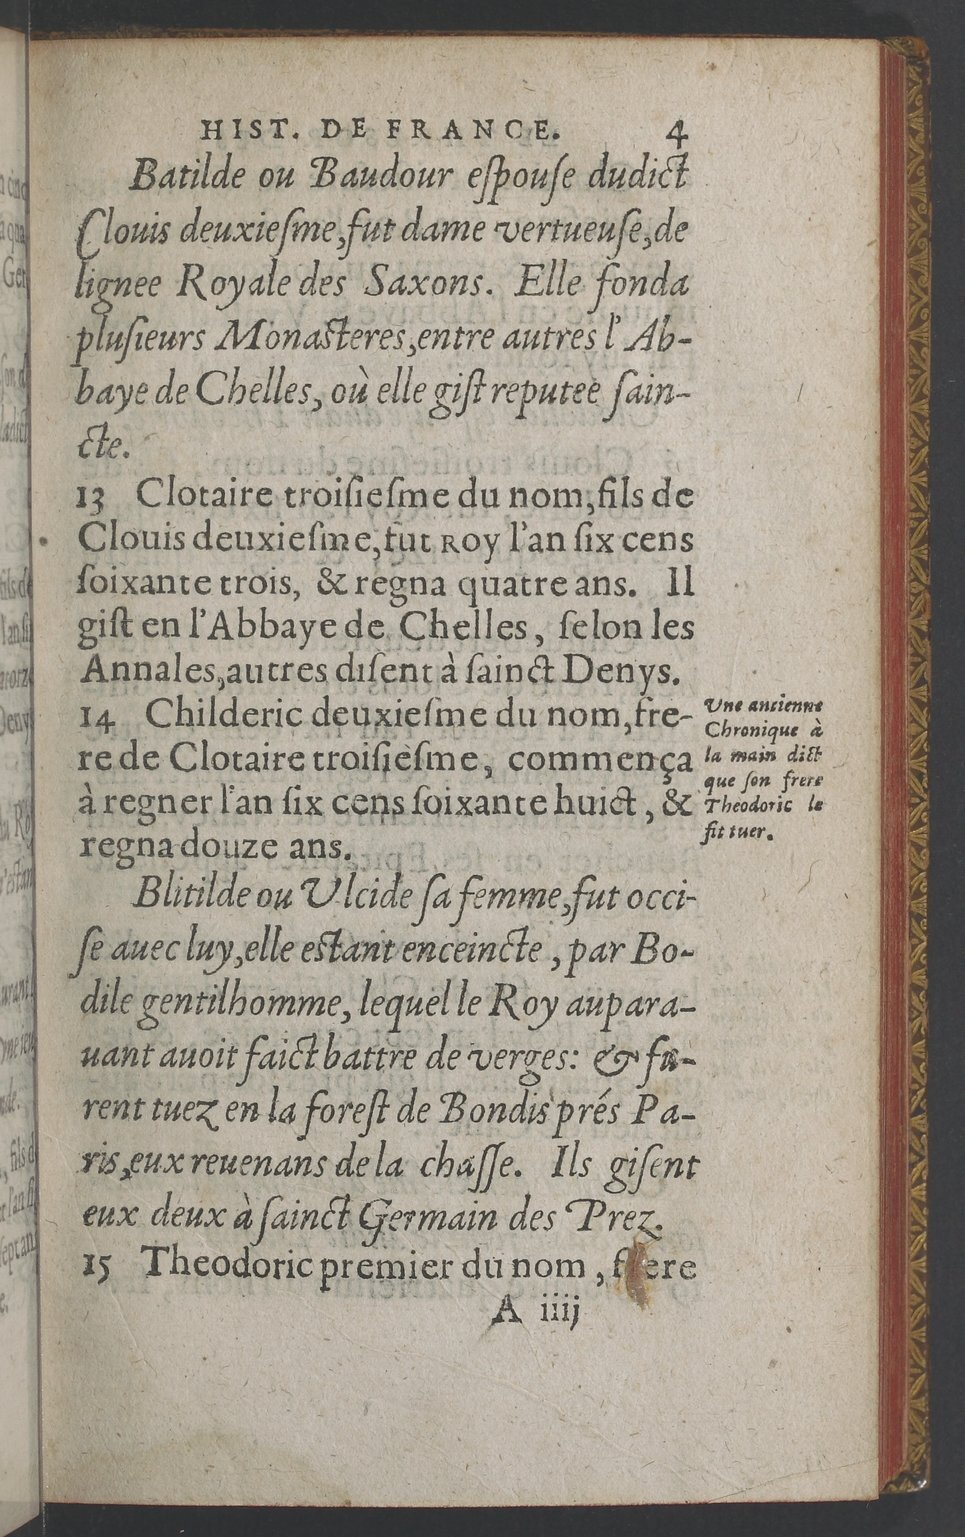 HIST. DE FRANCE. 4
Batilde ou Baudour eſpouſe dudict
Clouis deuxieſme, fut dame vertueuſe, de
lignee Royale des Saxons. Elle fonda
pluſieurs Monasteres, entre autres l'Ab-
baye de Chelles, où elle giſt reputee ſain-
cte.
13 Clotaire troiſieſme du nom, fils de
Clouis deuxieſme, fut Roy l'an ſix cens
ſoixante trois, & regna quatre ans. Il
giſt en l'Abbaye de Chelles, ſelon les
Annales, autres diſent à ſainct Denys.
14 Childeric deuxieſme du nom, fre-
re de Clotaire troiſieſme, commença
à regner l'an ſix cens ſoixante huict, &
regna douze ans.
Une ancienne
Chronique à
la main dict
que ſon frere
Theodoric le
fit tuer.
Blitilde ou Ulcide ſa femme, fut occi-
ſe auec luy, elle estant enceincte, par Bo-
dile gentilhomme, lequel le Roy aupara-
uant auoit faict battre de verges: & fu-
rent tuez en la foreſt de Bondis prés Pa-
ris, eux reuenans de la chaſſe. Ils giſent
eux deux à ſainct Germain des Prez.
15 Theodoric premier du nom, frere
A iiij